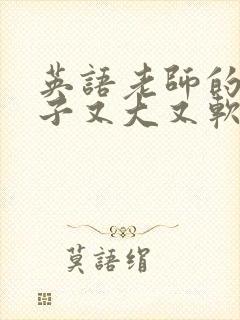 英語老師的
子又大又軟
莫語绢